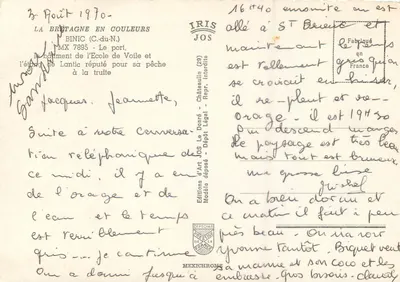 3 Août 1970 -
LA BRETAGNE EN COULEURS
BINIC (C.-du-N.)
MX 7895 - Le port.
Bâtiment de l'École de Voile et
l'étang Lantic réputé pour sa pêche
à la truite
Jacques. Jeannette,
Suite à notre conversa-
tion téléphonique de
ce midi, il y a eu
de l'orage et de
l'eau et le temps
est terriblement
gris... je continue
On a dormi jusqu'à
IRIS
JOS
Éditions d'Art JOS Le Doaré - Châteaulin (29)
Modèle déposé - Dépôt Légal - Repr. interdite
MEXICHROME
Fabriqué
en
France
16h40 ensuite on est
allé à St Brieuc et
maintenant le temps
est tellement gris qu'on
se croirait en hiver,
il re-pleut et re-
orage - il est 19h30
On descend manger
le paysage est très beau
mais tout est brumeux
ma grosse bise
Michel
On a bien dormi et
ce matin il fait à peu
près beau - On va voir
Yvonne tantôt. Biquet veut
sa mamie et son coco et les
embrasse. Gros bisous - Claudy